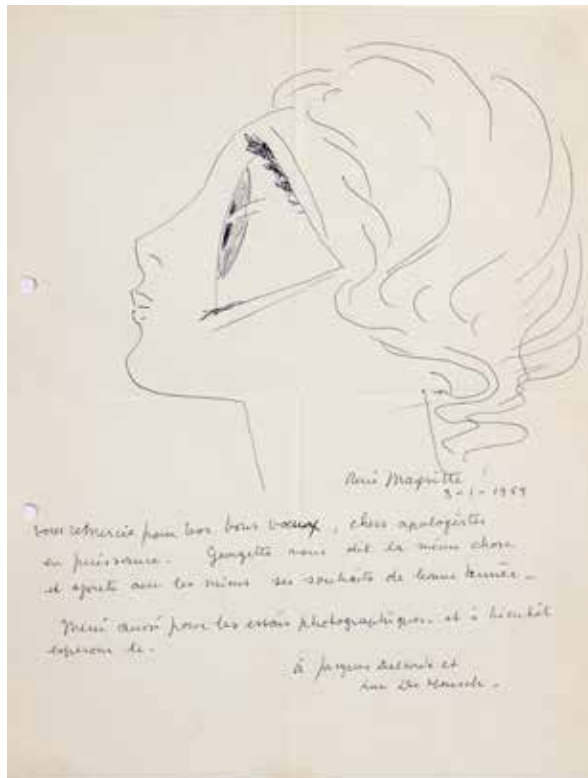 René Magritte
3-1-1959
vous remercie pour vos bons vœux, chers apologistes
en puissance. Georgette vous dit la même chose
et ajoute avec les miens ses souhaits de bonne année -
Merci aussi pour les essais photographiques et à bientôt
espérons le -
à Jacques